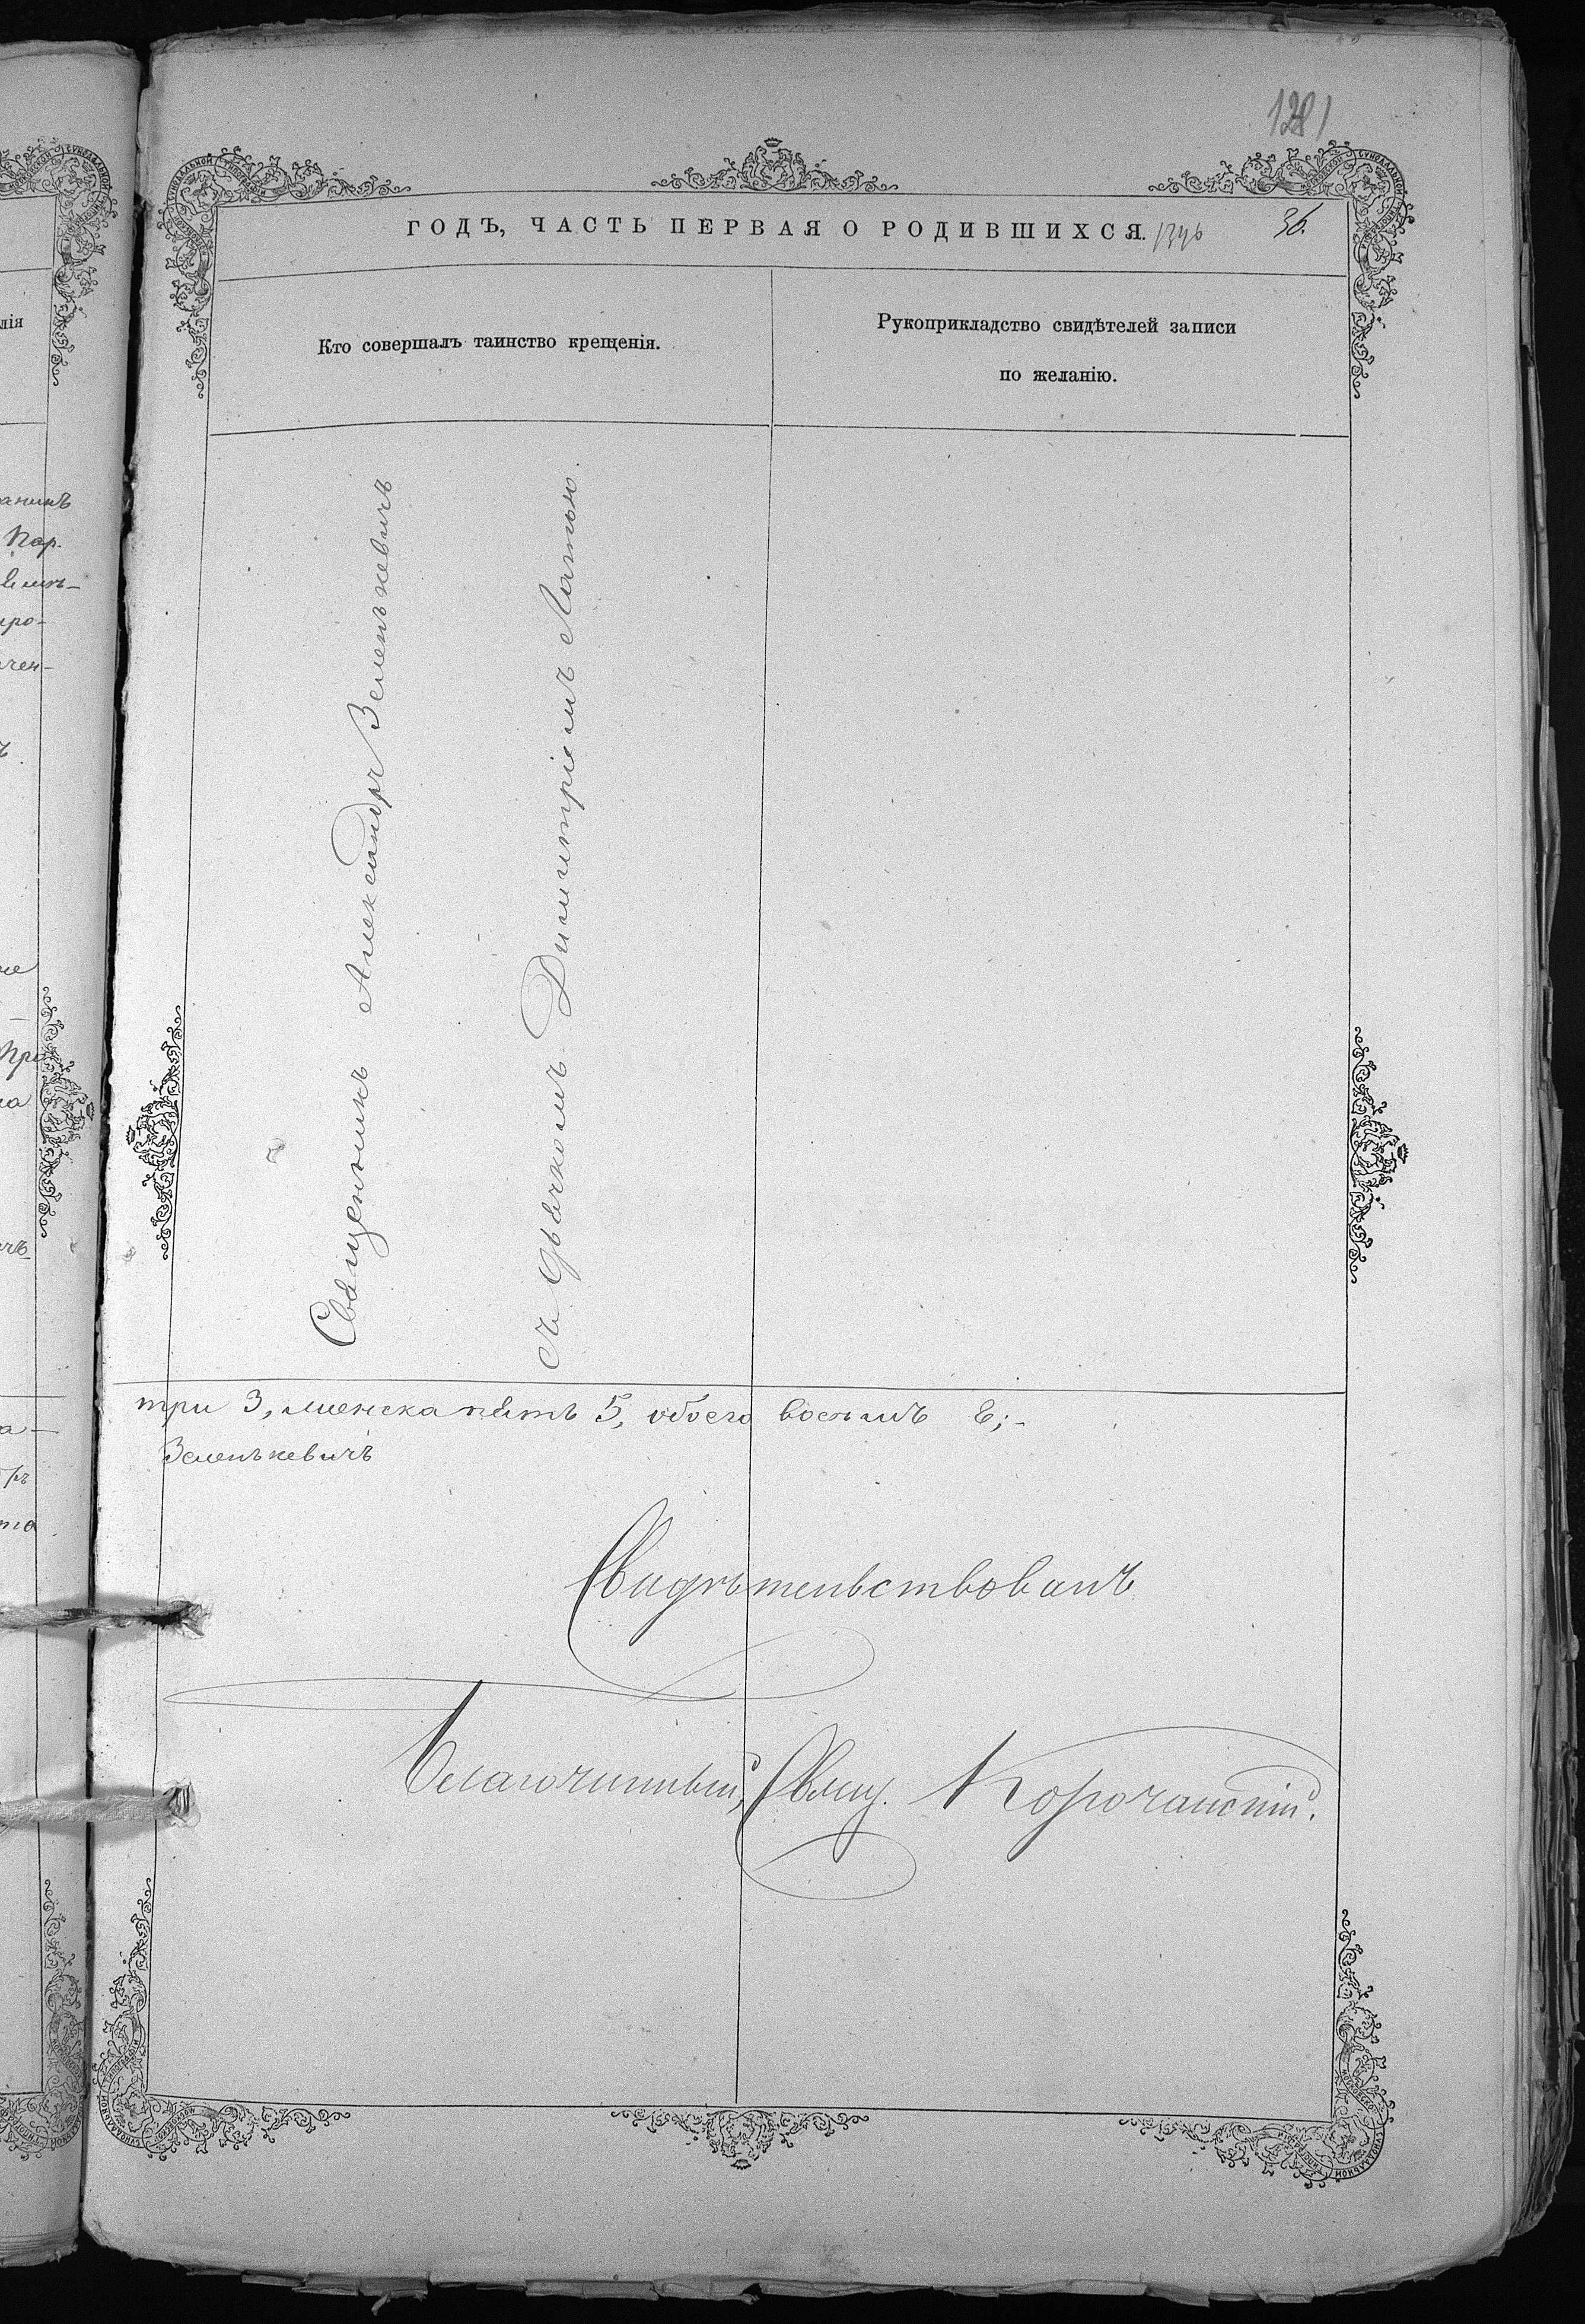 1281
ГОДЪ, ЧАСТЬ ПЕРВАЯ О РОДИВШИХСЯ.
36.
Кто совершалъ таинство крещенія.
Рукоприкладство свидѣтелей записи
по желанію.
Священникъ Александръ Зеленькевичъ
съ дьячкомъ Димитріемъ
три 3, женска пять 5, обоего восемь 8;-
Зеленькевичъ
Свидѣтельствовалъ
Благочинный, Свящ. Корочанскій.
лія
анинъ